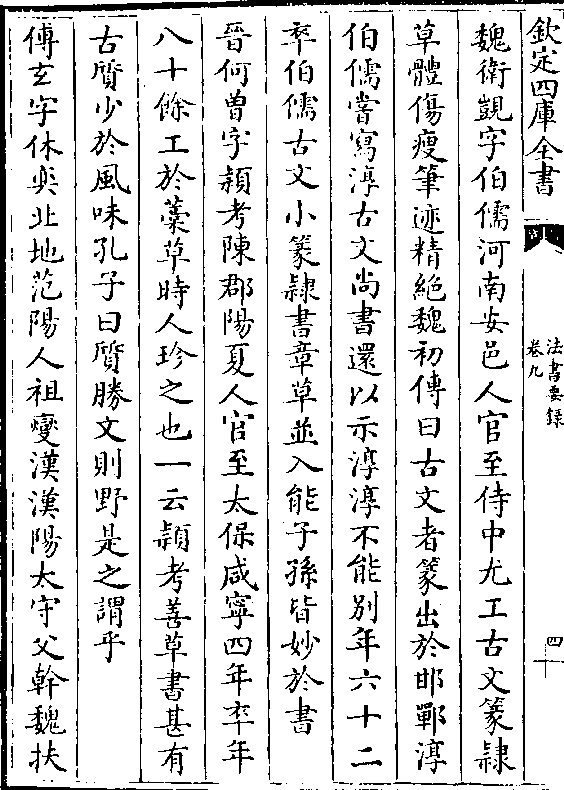 欽定四庫全書
法書要錄
卷九
四十
魏衛覬字伯儒河南安邑人官至侍中尤工古文篆隸
草體傷瘦筆迹精絶魏初傳曰古文者篆出於邯鄲淳
伯儒嘗寫淳古文尚書還以示淳淳不能别年六十二
卒伯儒古文小篆隸書章草並入能子孫皆妙於書
晉何曽字頴考陳郡陽夏人官至太保咸寧四年卒年
八十餘工於藁草時人珍之也一云頴考善草書甚有
古質少於風味孔子曰質勝文則野是之謂乎
傅玄字休奕北地范陽人祖燮漢漢陽太守父幹魏扶